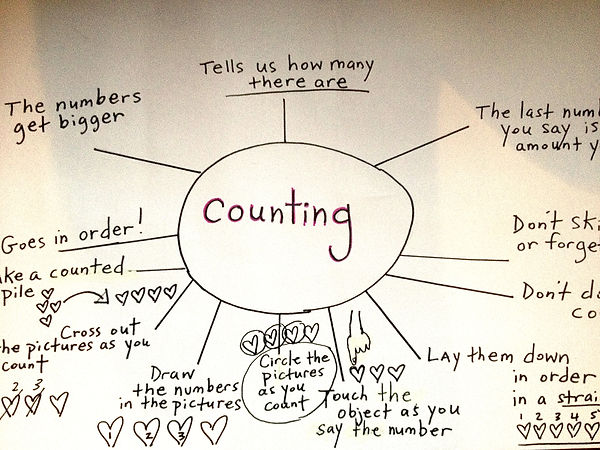 Tells us how many
there are
The numbers
get bigger
The last
you say is
amount
counting
Goes in order!
Don't
or
a counted
pile
Don't
Cross out
the pictures as you
count
2, 3,
Draw
the numbers
in the pictures
1 2 3
Circle the
pictures
as you
count
Touch the
object as you
say the number
Lay them down
in order
in a
1 2 3 4 5